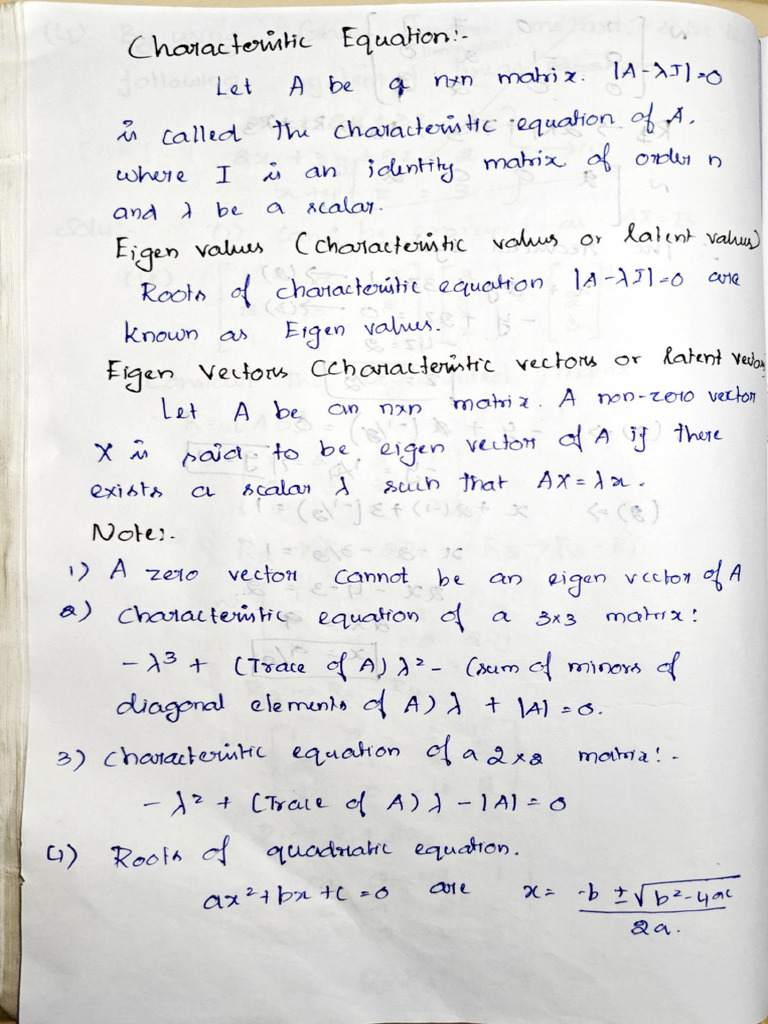 Characteristic Equation:-
Let A be a nxn matrix. |A-λI|=0
is called the characteristic equation of A.
where I is an identity matrix of order n
and λ be a scalar.
Eigen values (characteristic values or latent values)
Roots of characteristic equation |A-λI|=0 are
known as Eigen values.
Eigen Vectors (Characteristic vectors or latent vectors
Let A be an nxn matrix. A non-zero vector
X is said to be eigen vector of A if there
exists a scalar λ such that AX=λx.
Note:-
1) A zero vector cannot be an eigen vector of A
2) Characteristic equation of a 3x3 matrix:
-λ³ + (Trace of A) λ² - (sum of minors of
diagonal elements of A) λ + |A| = 0.
3) Characteristic equation of a 2x2 matrix:-
-λ² + (Trace of A) λ - |A| = 0
4) Roots of quadratic equation.
ax²+bx+c=0 are x = -b ± √b²-4ac / 2a.